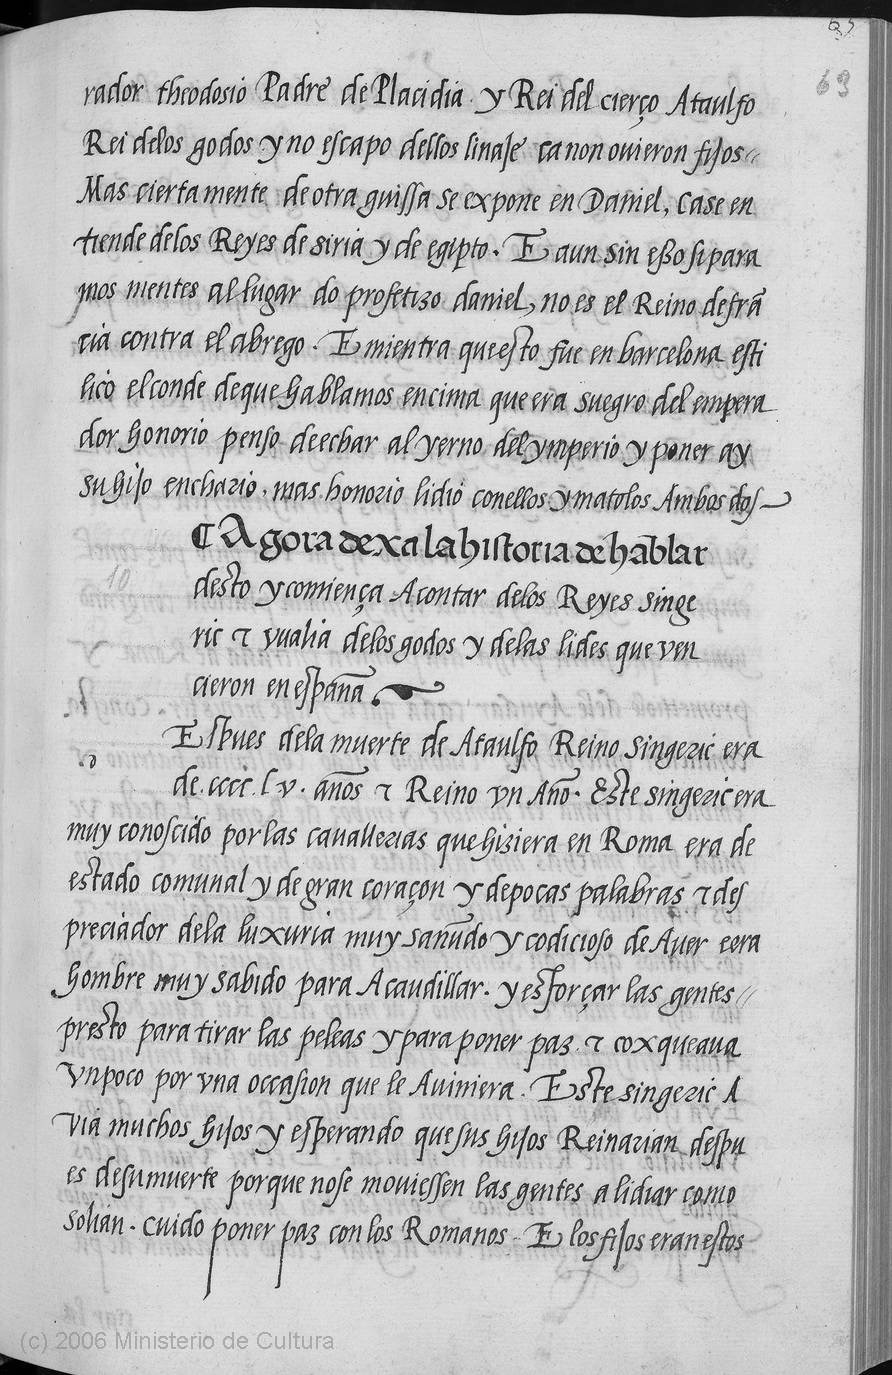 63
63
rador theodosio Padre de Placidia y Rei del cierço Ataulfo
Rei delos godos y no escapo dellos linaje ca non ouieron fijos
Mas ciertamente de otra guissa se expone en Daniel, Case en
tiende delos Reyes de siria y de egipto. E aun sin esso si para
mos mentes al lugar do profetizo daniel, no es el Reino de frã
cia contra el abrego. E mientra que esto fue en barcelona esti
lico el conde de que hablamos encima que era suegro del empera
dor honorio penso de echar al yerno del ymperio y poner ay
su hijo enchario, mas honorio lidio conellos y matolos Ambos dos
¶ Agora dexa la historia de hablar
desto y comiença A contar delos Reyes singe
ric τ vualia delos godos y delas lides que ven
cieron en españa
Espues dela muerte de Ataulfo Reino singeric era
d
de .cccc. l v. años τ Reino vn Año. Este singeric era
muy conoscido por las cauallerias que hiziera en Roma era de
estado comunal y de gran coraçon y de pocas palabras τ des
preciador dela luxuria muy sañudo y codicioso de Auer eera
hombre muy sabido para Acaudillar. y esforçar las gentes
presto para tirar las peleas y para poner paz. τ coxqueaua
vn poco por vna occasion que le Auiniera. Este singeric A
via muchos hijos y esperando que sus hijos Reinarian despu
es de su muerte porque no se mouiessen las gentes a lidiar como
solian. cuido poner paz con los Romanos. E los fijos eran estos
10
(c) 2006 Ministerio de Cultura